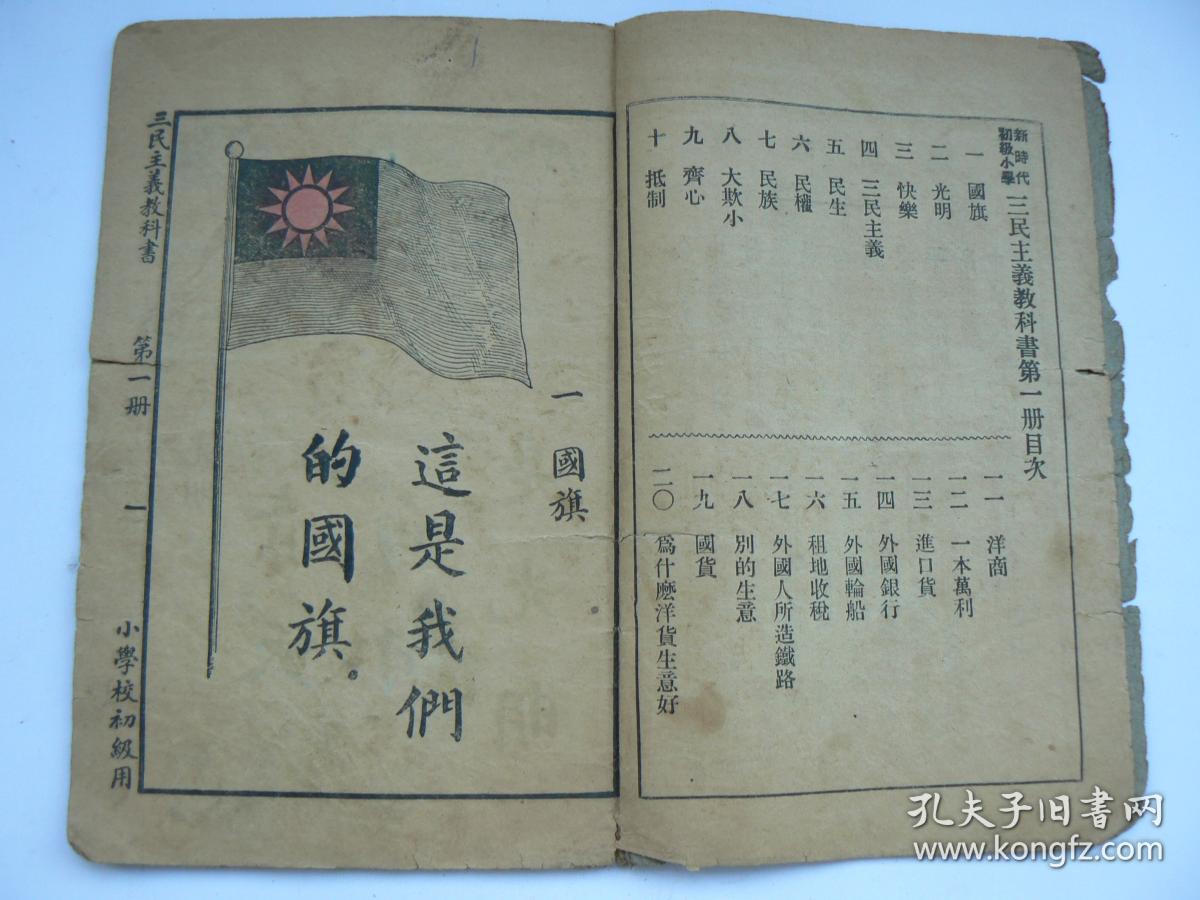 新時代
初級小學
三民主義教科書第一册目次
一 國旗
二 光明
三 快樂
四 三民主義
五 民生
六 民權
七 民族
八 大欺小
九 齊心
十 抵制
一一 洋商
一二 一本萬利
一三 進口貨
一四 外國銀行
一五 外國輪船
一六 租地收稅
一七 外國人所造鐵路
一八 別的生意
一九 國貨
二〇 爲什麽洋貨生意好
一 國旗
這是我們
的國旗。
三民主義教科書 第一册 一 小學校初級用
孔夫子旧书网
www.kongfz.com